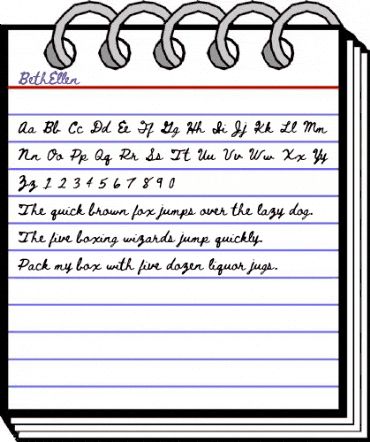 BethEllen
Aa Bb Cc Dd Ee Ff Gg Hh Ii Jj Kk Ll Mm
Nn Oo Pp Qq Rr Ss Tt Uu Vv Ww Xx Yy
Zz 1 2 3 4 5 6 7 8 9 0
The quick brown fox jumps over the lazy dog.
The five boxing wizards jump quickly.
Pack my box with five dozen liquor jugs.